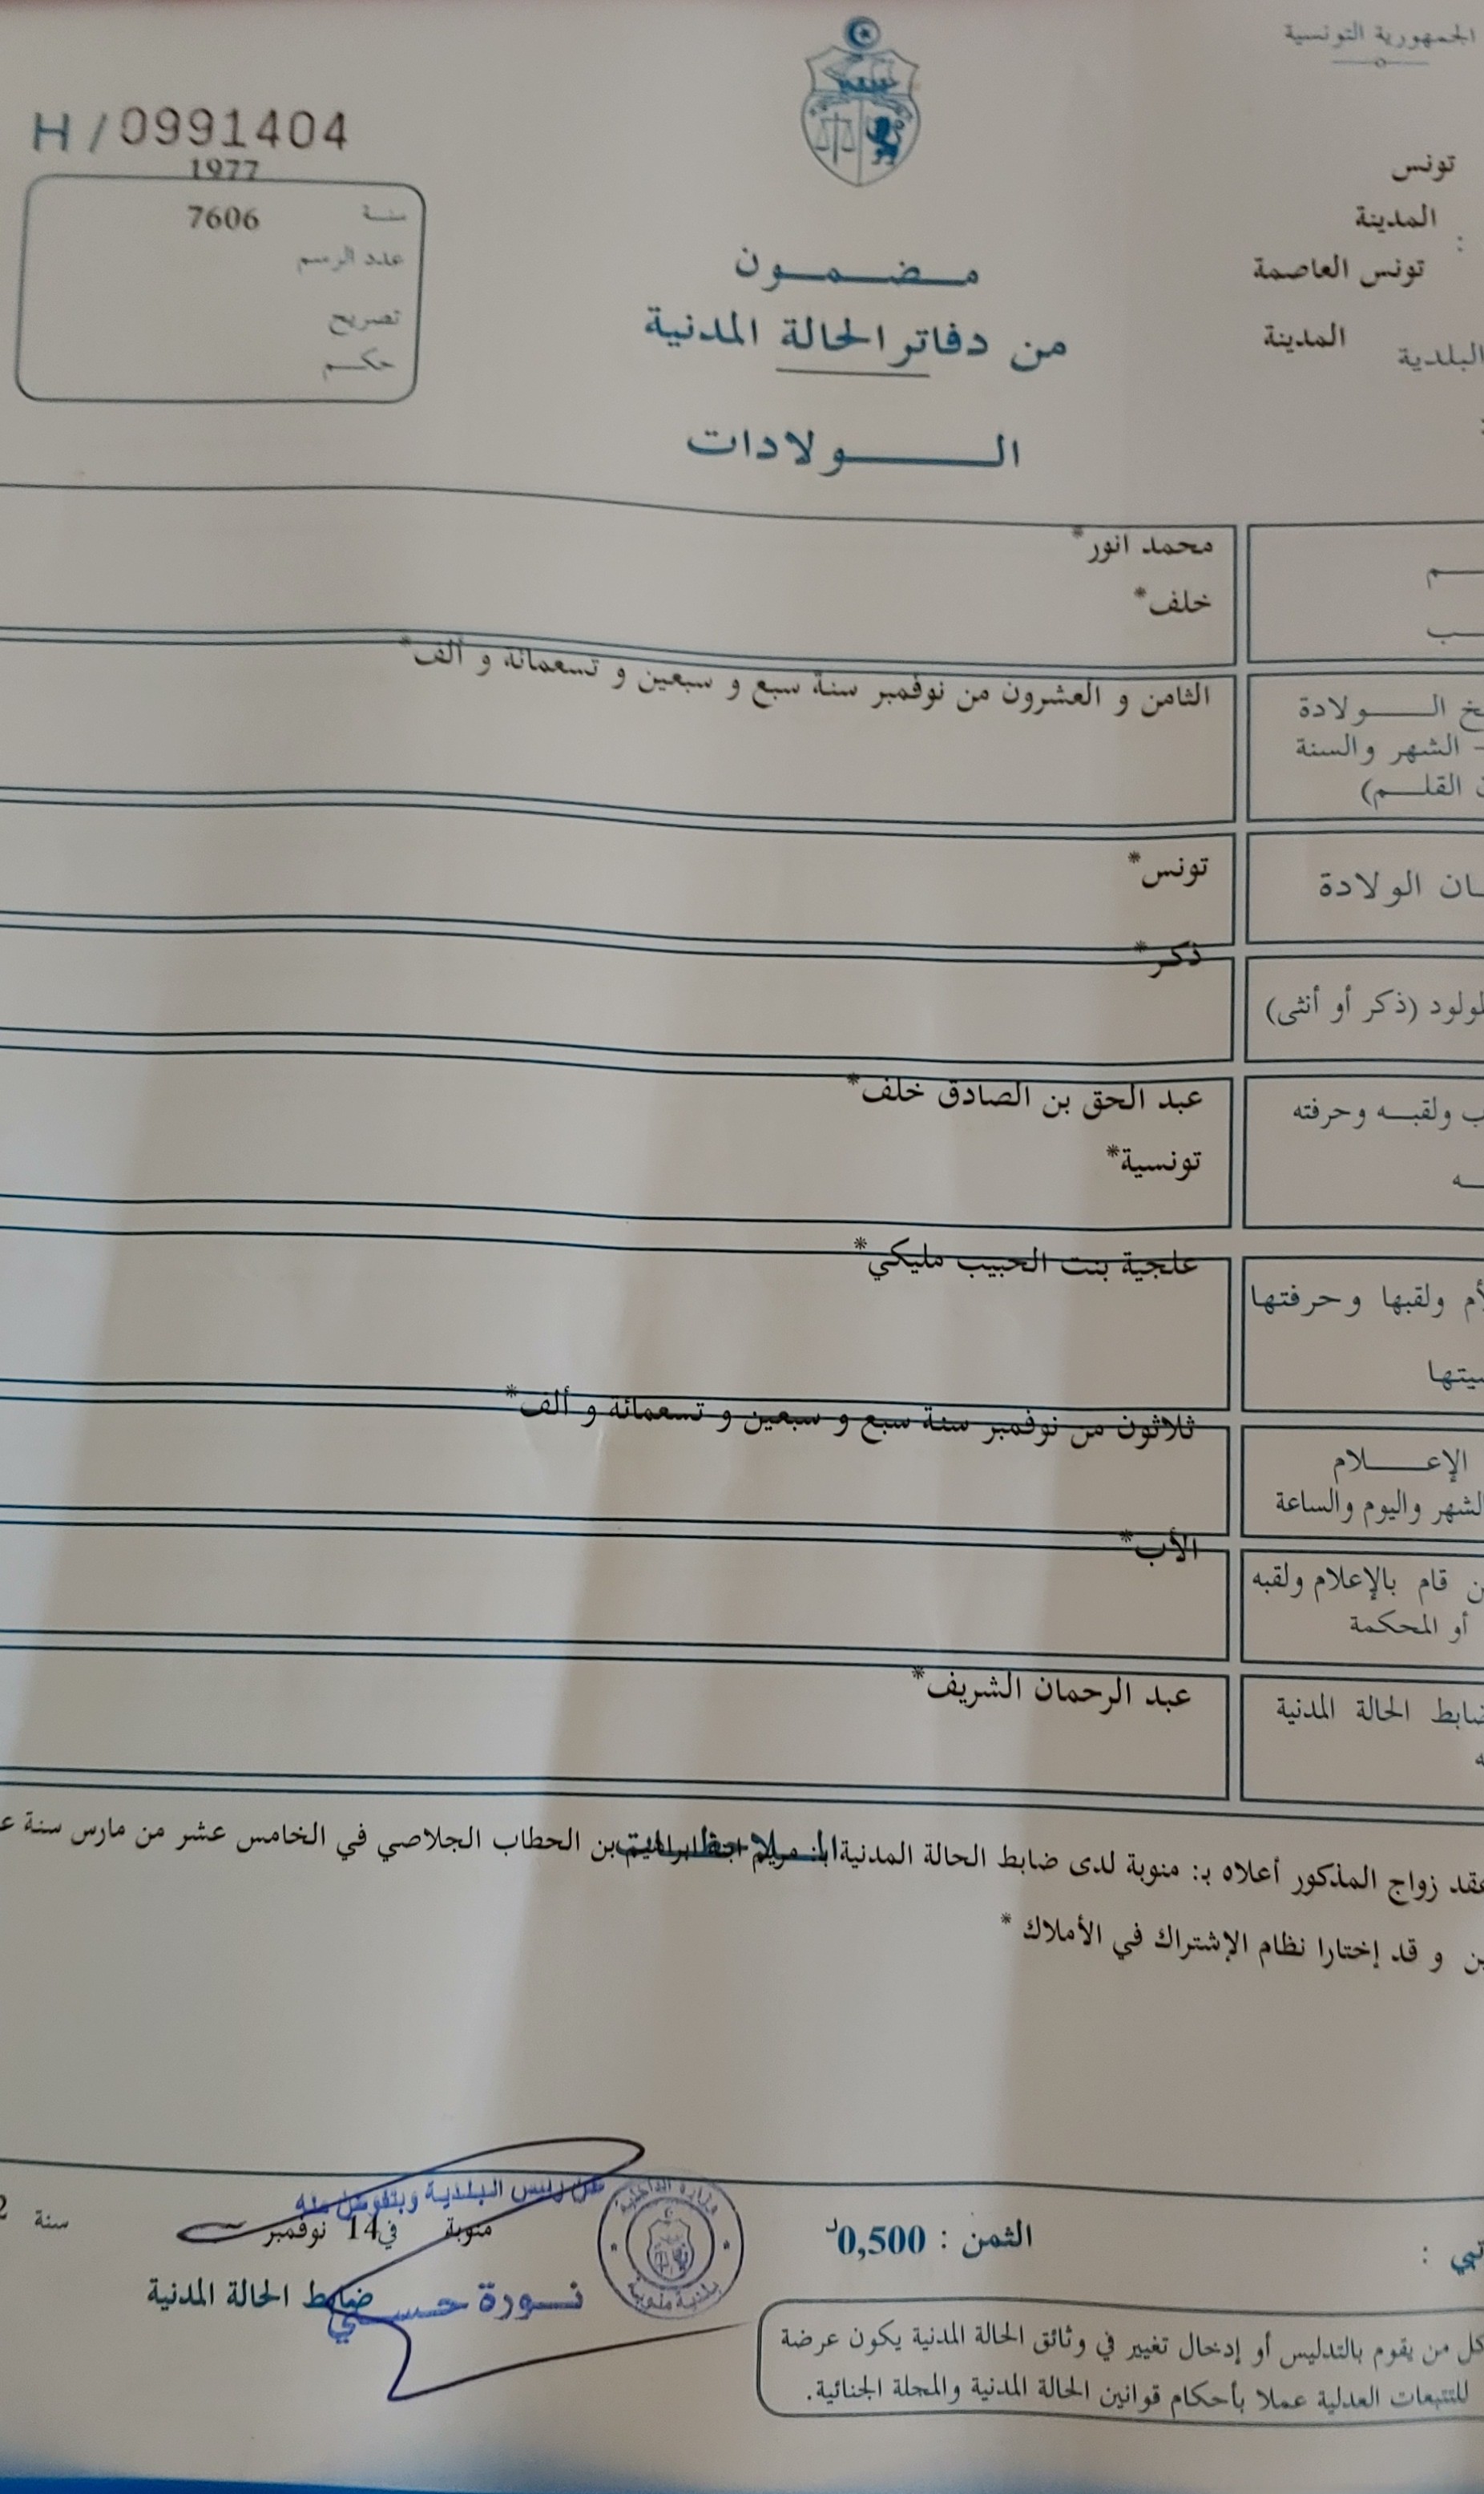 الجمهورية التونسية
تونس
المدينة
:
تونس العاصمة
البلدية المدينة
H / 0991404
1977
سنة 7606
عدد الرسم
تصريح
حكم
مضمون
من دفاتر الحالة المدنية
الولادات
محمد انور*
خلف*
الولادة
- الشهر والسنة
القلم)
الثامن و العشرون من نوفمبر سنة سبع و سبعين و تسعمائة و ألف*
الولادة
تونس*
(ذكر أو أنثى)
ذكر*
ولقبه وحرفته
عبد الحق بن الصادق خلف*
تونسية*
ولقبها وحرفتها
علجية بنت الحبيب مليكي*
الإعلام
الشهر واليوم والساعة
ثلاثون من نوفمبر سنة سبع و سبعين و تسعمائة و ألف*
قام بالإعلام ولقبه
أو المحكمة
الأب*
الحالة المدنية
عبد الرحمان الشريف*
الملاحظات
عقد زواج المذكور أعلاه بـ: منوبة لدى ضابط الحالة المدنية بـ: مريم ابنة ابراهيم بن الحطاب الجلاصي في الخامس عشر من مارس سنة
و قد إختارا نظام الإشتراك في الأملاك *
عن رئيس البلدية وبتفويض منه
منوبة في 14 نوفمبر سنة
ضابط الحالة المدنية
نورة حسني
وزارة الداخلية
بلدية منوبة
الثمن : 0,500د
كل من يقوم بالتدليس أو إدخال تغيير في وثائق الحالة المدنية يكون عرضة
للتتبعات العدلية عملا بأحكام قوانين الحالة المدنية والمجلة الجنائية.